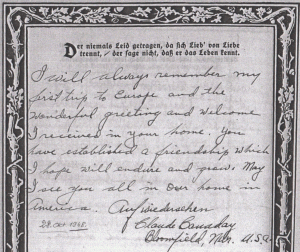 Der niemals Leid getragen, da sich Lieb' von Liebe
trennt, / der sage nicht, daß er das Leben kennt.
I will always remember my
first trip to Europe and the
wonderful greeting and welcome
I received in your home. You
have established a friendship which
I hope will endure and grow. May
I see you all in our home in
America Aufwiedersehen
28. Oct 1948. Claude Canaday
Bloomfield, Nebr. U.S.A.